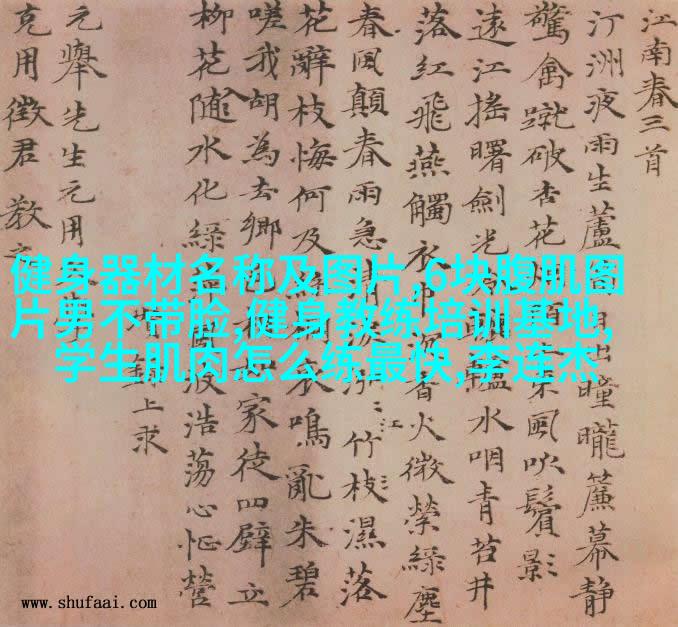 江南春三首
汀洲夜雨生蘆日出曈曨簾幕靜
驚禽蹴破杏花東風吹鬢影
遠江搖曙劍光轤水咽青苔井
落紅飛燕觸衣巾香火微縈綠塵
春風顛春雨急清淚泓江竹枝濕落
花辭枝悔何及絲哀鳴亂朱碧
嗟我胡為去鄉邑相如家徒四壁立
柳花隨水化綠萍風波浩蕩心怔營
錄上求
元舉先生元用
克用徵君教之
健身器材名称及图片,6块腹肌图
片男不带脸,健身教练培训基地,
学生肌肉怎么练最快,李连杰
www.shufaai.com